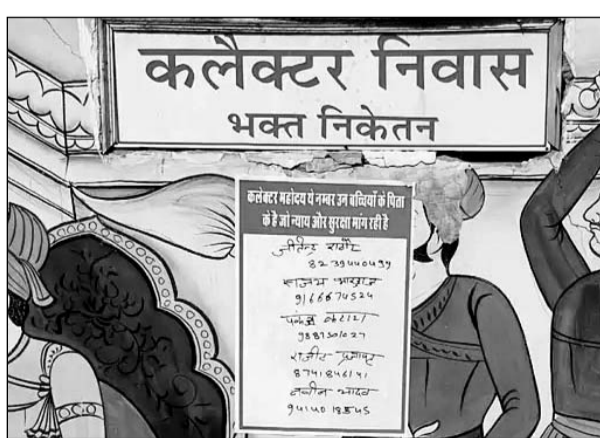 कलैक्टर निवास
भक्त निकेतन
कलेक्टर महोदय ये नम्बर उन बच्चियों के पिता
के है जो न्याय और सुरक्षा मांग रही है
जीतेन्द्र राठौर
8239440499
9166674524
पंकज
9887501027
राजीव
8741846141
नवीन यादव
9414018545